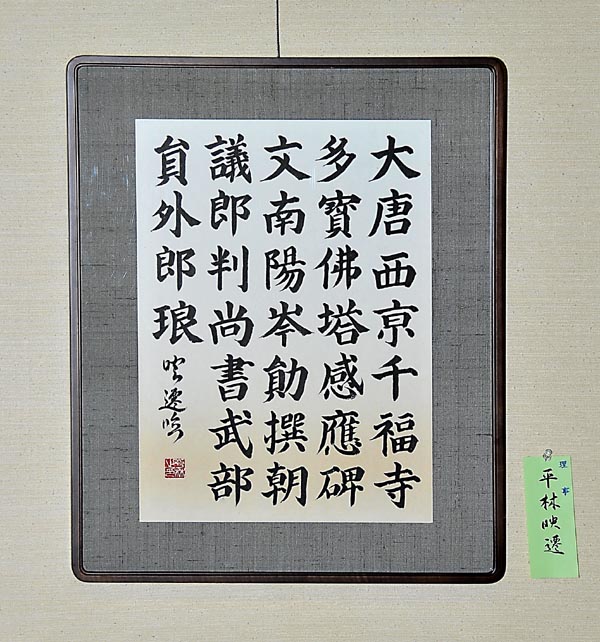 大唐西京千福寺
多寶佛塔感應碑
文南陽岑勛撰朝
議郎判尚書武部
員外郎琅
映遷臨
理事
平林映遷